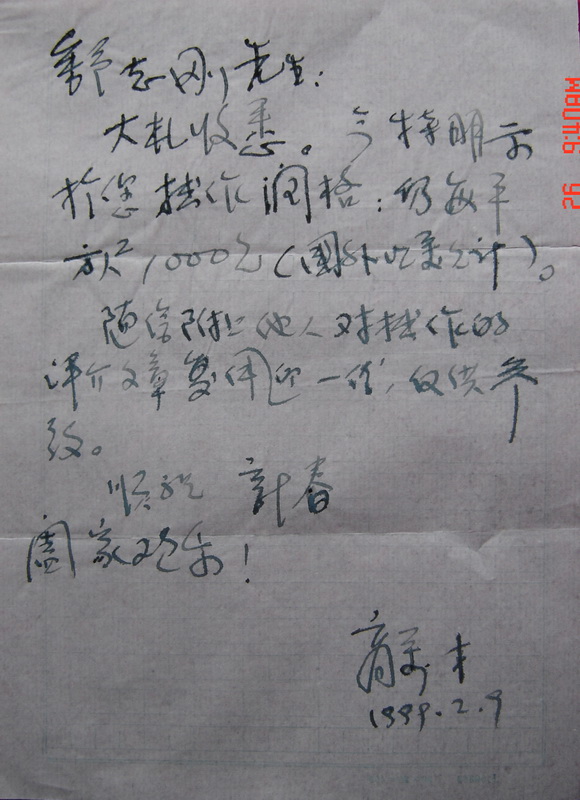 舒志刚先生：
大札收悉。今特明示
于您拙作润格：仍每平
方尺1000元（国外以美元计）。
随信附上他人对拙作的
评介文章复印件一份，仅供参
致。
顺祝 新春
阖家欢乐！
1999.2.9